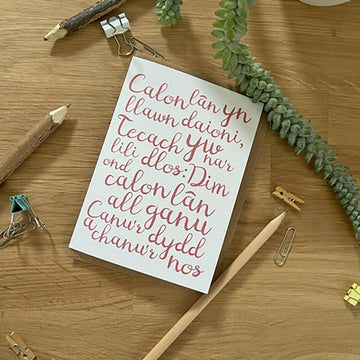 Calon lân yn
llawn daioni,
Tecach yw na'r
lili dlos: Dim
ond calon lân
all ganu
Canu'r dydd
a chanu'r nos